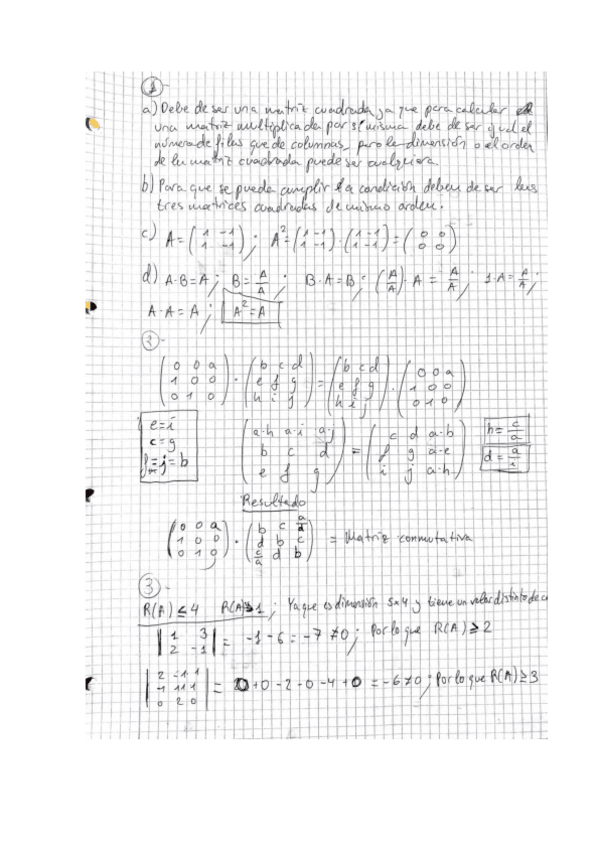 1
a) Debe de ser una matriz cuadrada ya que para calcular
una matriz multiplicada por sí misma debe de ser igual el
número de filas que de columnas, pero la dimensión o el orden
de la matriz cuadrada puede ser cualquiera.
b) Para que se pueda cumplir la condición deben de ser las
tres matrices cuadradas de mismo orden.
c) A = (1 -1; 1 -1); A² = (1 -1; 1 -1) · (1 -1; 1 -1) = (0 0; 0 0)
d) A·B = A; B = A/A; B·A = B; (A/A)·A = A/A; 1·A = A/A;
A·A = A; A² = A
2-
(0 0 a; 1 0 0; 0 1 0) · (b c d; e f g; h i j) = (b c d; e f g; h i j) · (0 0 a; 1 0 0; 0 1 0)
e = i
c = g
f = j = b
(a·h a·i a·j; b c d; e f g) = (c d a·b; f g a·e; i j a·h)
h = c/a
d = a/i
Resultado
(0 0 a; 1 0 0; 0 1 0) · (b c a/d; d b c; c/a d b) = Matriz conmutativa
3-
R(A) ≤ 4 R(A) ≥ 1; Ya que es dimensión 5x4 y tiene un valor distinto de
|1 3; 2 -1| = -1 - 6 = -7 ≠ 0; Por lo que R(A) ≥ 2
+0 -2 -0 -4 +0 = -6 ≠ 0; Por lo que R(A) ≥ 3